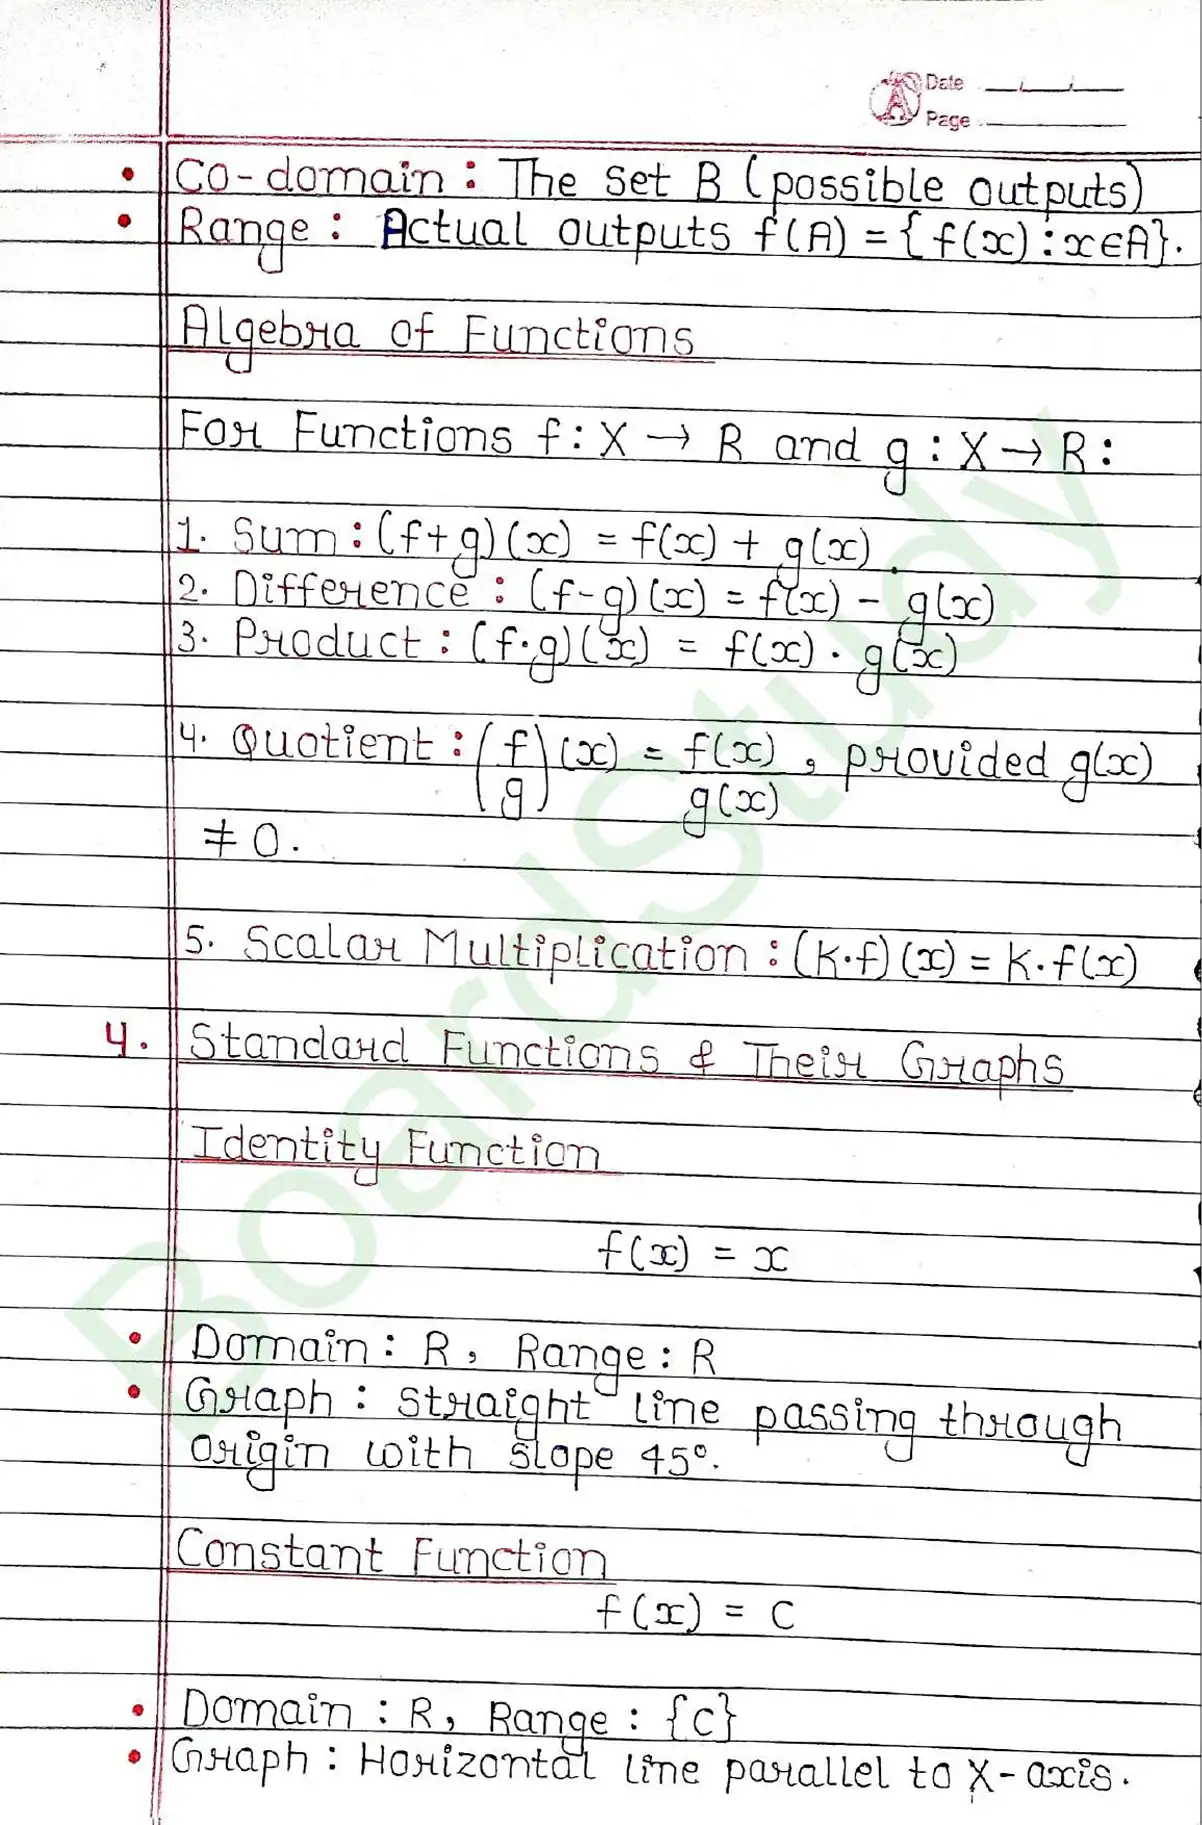 Date
Page
• Co-domain : The set B (possible outputs)
• Range : Actual outputs f(A) = { f(x) : x ∈ A}.
Algebra of Functions
For Functions f : X → R and g : X → R :
1. Sum : (f+g)(x) = f(x) + g(x).
2. Difference : (f-g)(x) = f(x) - g(x)
3. Product : (f·g)(x) = f(x) · g(x)
4. Quotient : (f/g)(x) = f(x)/g(x), provided g(x)
≠ 0.
5. Scalar Multiplication : (K·f)(x) = K·f(x)
4. Standard Functions & Their Graphs
Identity Function
f(x) = x
• Domain : R, Range : R
• Graph : straight line passing through
origin with slope 45°.
Constant Function
f(x) = c
• Domain : R, Range : {c}
• Graph : Horizontal line parallel to X-axis.
BoardStudy